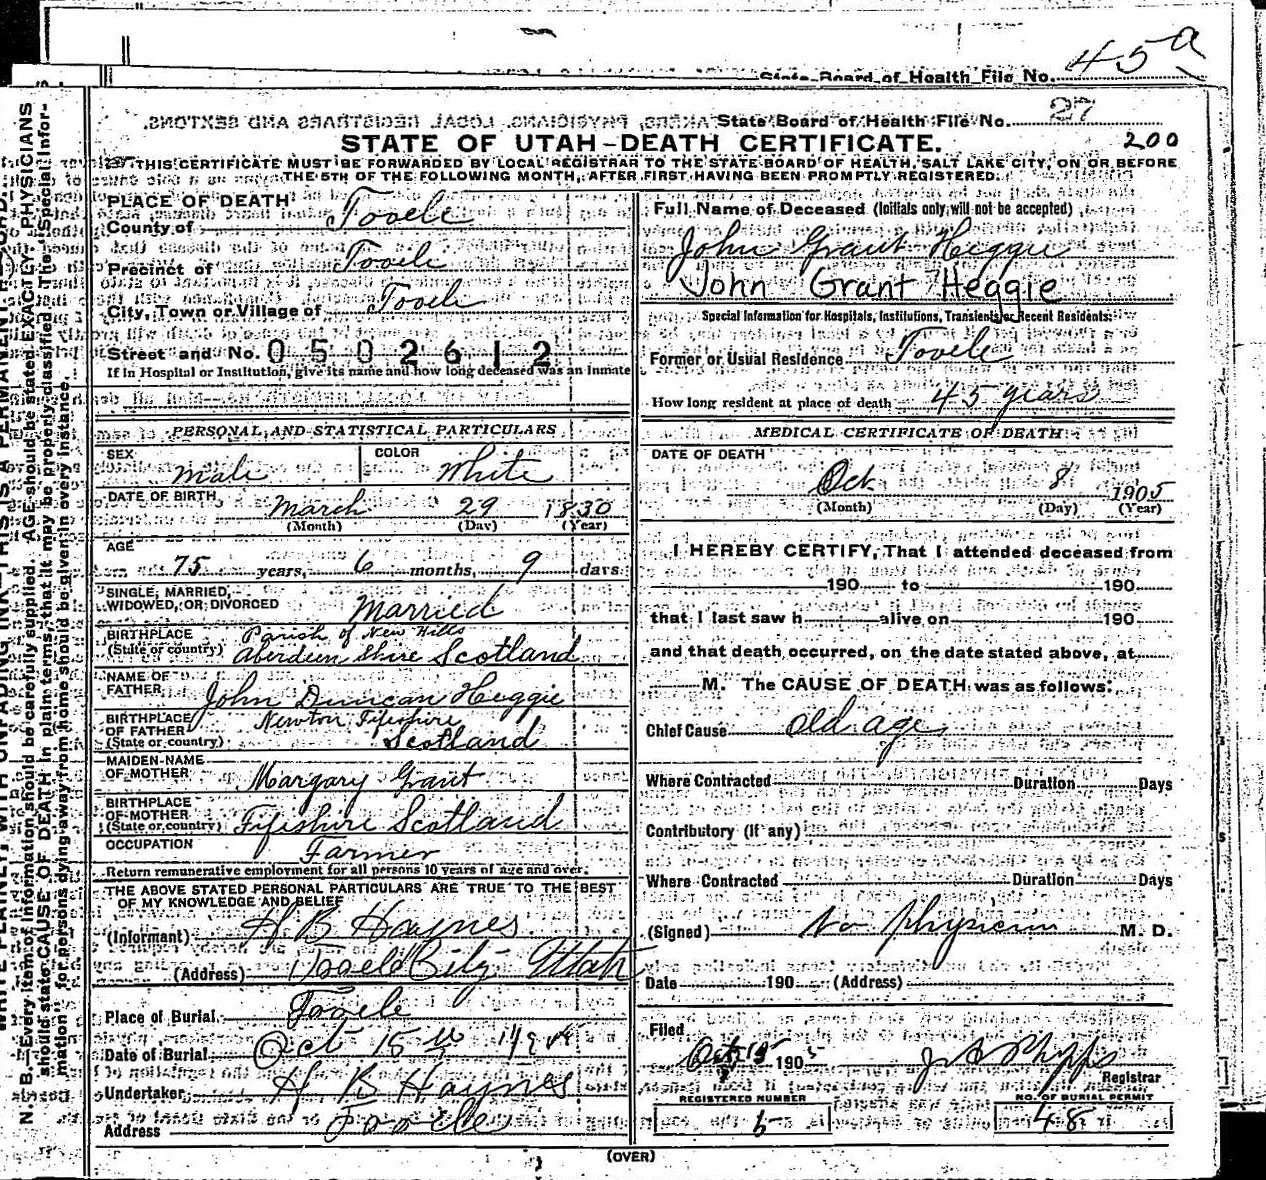 45a
State Board of Health File No.
State Board of Health File No. 27
STATE OF UTAH-DEATH CERTIFICATE.
200
THIS CERTIFICATE MUST BE FORWARDED BY LOCAL REGISTRAR TO THE STATE BOARD OF HEALTH, SALT LAKE CITY, ON OR BEFORE
THE 5TH OF THE FOLLOWING MONTH, AFTER FIRST HAVING BEEN PROMPTLY REGISTERED.
N. B.—Every item of information should be carefully supplied. AGE should be stated EXACTLY. PHYSICIANS
should state CAUSE OF DEATH in plain terms, that it may be properly classified. The "Special Infor-
mation" for persons dying away from home should be given in every instance.
PLACE OF DEATH
County of Tooele
Precinct of Tooele
City, Town or Village of Tooele
Street and No. 0502612
If in Hospital or Institution, give its name and how long deceased was an inmate
PERSONAL AND STATISTICAL PARTICULARS
SEX Male COLOR White
DATE OF BIRTH March 29 1830
(Month) (Day) (Year)
AGE
75 years, 6 months, 9 days
SINGLE, MARRIED,
WIDOWED, OR DIVORCED Married
BIRTHPLACE Parish of New Hills
(State or country) Aberdeen Shire Scotland
NAME OF
FATHER John Duncan Heggie
BIRTHPLACE Newton Fifeshire
OF FATHER
(State or country) Scotland
MAIDEN NAME
OF MOTHER Margary Grant
BIRTHPLACE
OF MOTHER
(State or country) Fifeshire Scotland
OCCUPATION Farmer
Return remunerative employment for all persons 10 years of age and over.
THE ABOVE STATED PERSONAL PARTICULARS ARE TRUE TO THE BEST
OF MY KNOWLEDGE AND BELIEF
(Informant) H B Haynes
(Address) Tooele City Utah
Place of Burial Tooele
Date of Burial Oct 15
Undertaker H B Haynes
Address Tooele
Full Name of Deceased (Initials only will not be accepted)
John Grant Heggie
John Grant Heggie
Special Information for Hospitals, Institutions, Transients or Recent Residents:
Former or Usual Residence Tooele
How long resident at place of death 45 years
MEDICAL CERTIFICATE OF DEATH
DATE OF DEATH
Oct 8 1905
(Month) (Day) (Year)
I HEREBY CERTIFY, That I attended deceased from
190 to 190
that I last saw h alive on 190
and that death occurred, on the date stated above, at
M. The CAUSE OF DEATH was as follows:
Chief Cause old age
Where Contracted Duration Days
Contributory (if any)
Where Contracted Duration Days
(Signed) No Physician M. D.
Date 190 (Address)
Filed
Oct 190
Registrar
REGISTERED NUMBER NO. OF BURIAL PERMIT
48
(OVER)